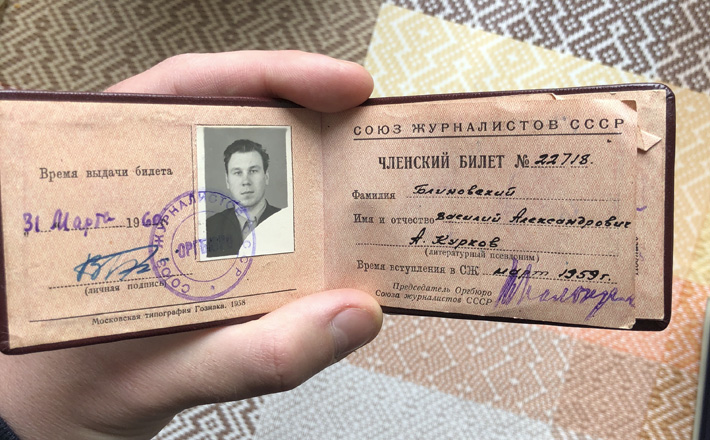 Время выдачи билета
31 Марта 1960
(личная подпись)
Московская типография Гознака. 1958
СОЮЗ ЖУРНАЛИСТОВ СССР
ОРГБЮРО
СОЮЗ ЖУРНАЛИСТОВ СССР
ЧЛЕНСКИЙ БИЛЕТ № 22718.
Фамилия Блиновский
Имя и отчество Василий Александрович
А. Курков
(литературный псевдоним)
Время вступления в СЖ март 1959г.
Председатель Оргбюро
Союза журналистов СССР